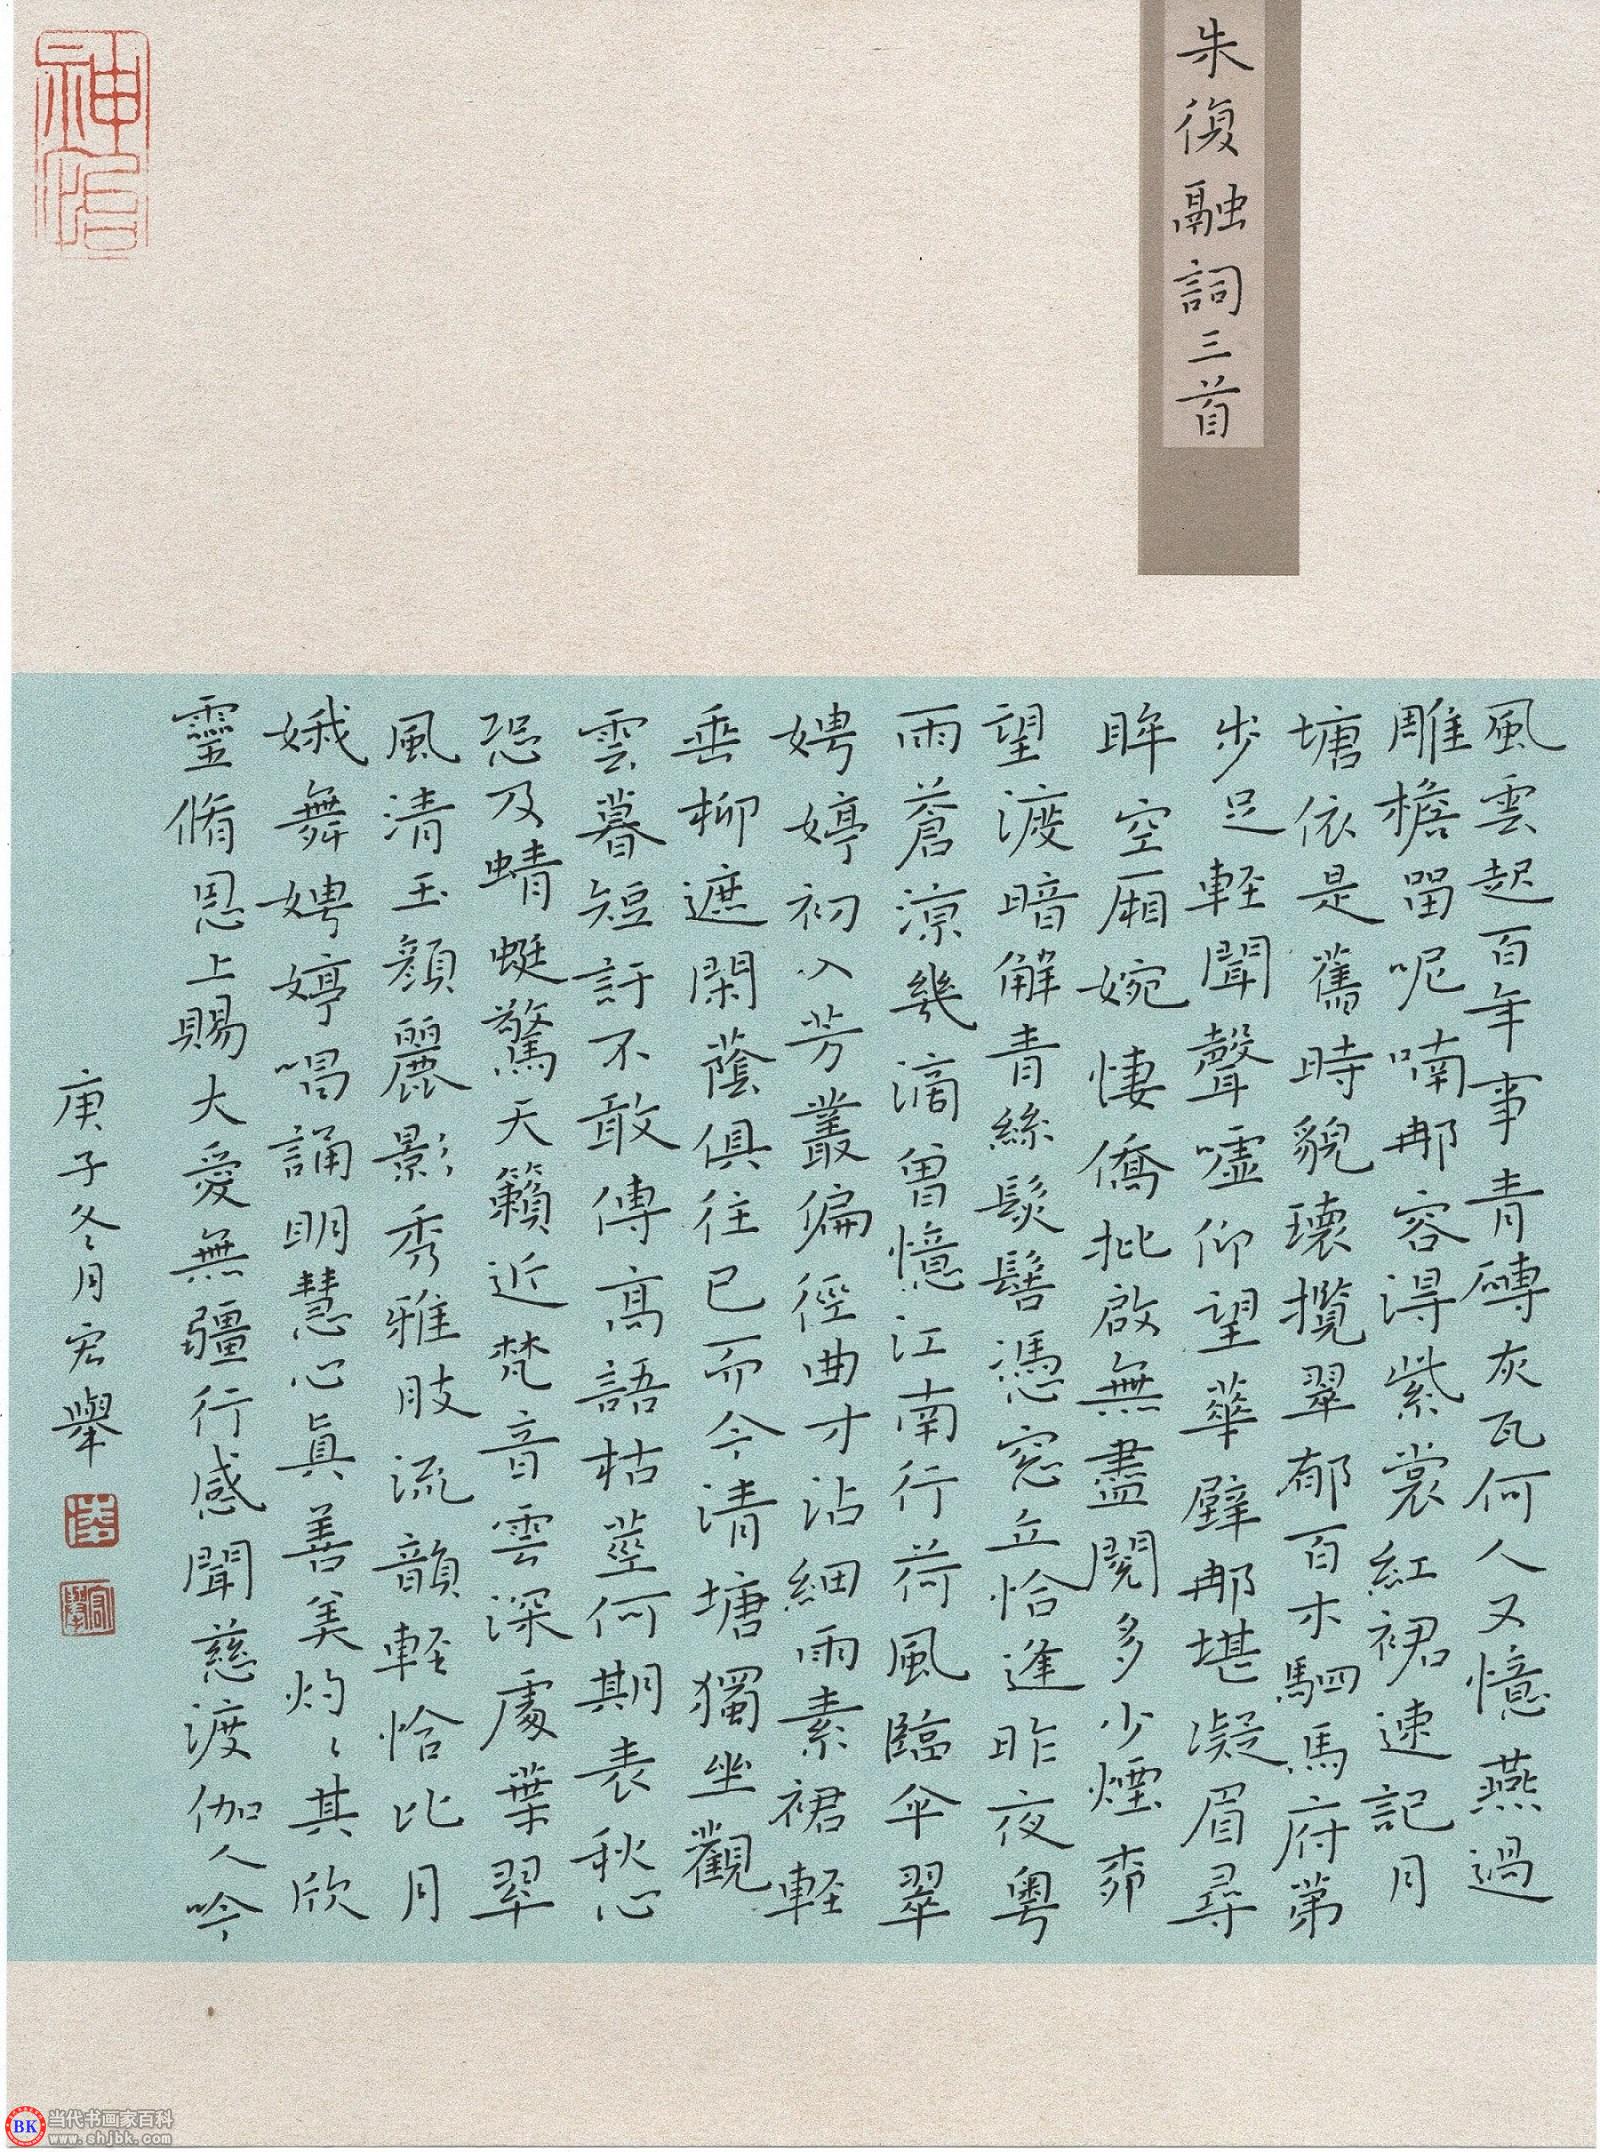 朱復融詞三首
風雲起百年事青磚灰瓦何人又憶燕過
雕檐留呢喃那容得紫裳紅裙速記月
塘依是舊時貌環攬翠郁百木駟馬府第
步足輕聞聲噓仰望華壁那堪凝眉尋
眸空廂婉悽僑批啟無盡閱多少煙
望渡暗解青絲鬆髻憑窓立恰逢昨夜粵
雨蒼涼幾滴曾憶江南行荷風臨伞翠
娉婷初入芳叢偏徑曲才沾細雨素裙輕
垂柳遮閑蔭俱往已而今清塘獨坐觀
雲暮短訏不敢傳高語枯莖何期表秋心
恐及蜻蜓驚天籟近梵音雲深處葉翠
風清玉顏麗影秀雅肢流韻輕恰比月
娥舞娉婷唱誦明慧心真善美灼灼其欣
靈脩恩上賜大愛無疆行感聞慈渡伽人吟
庚子冬月宏舉
BK 当代书画家百科
www.shjbk.com